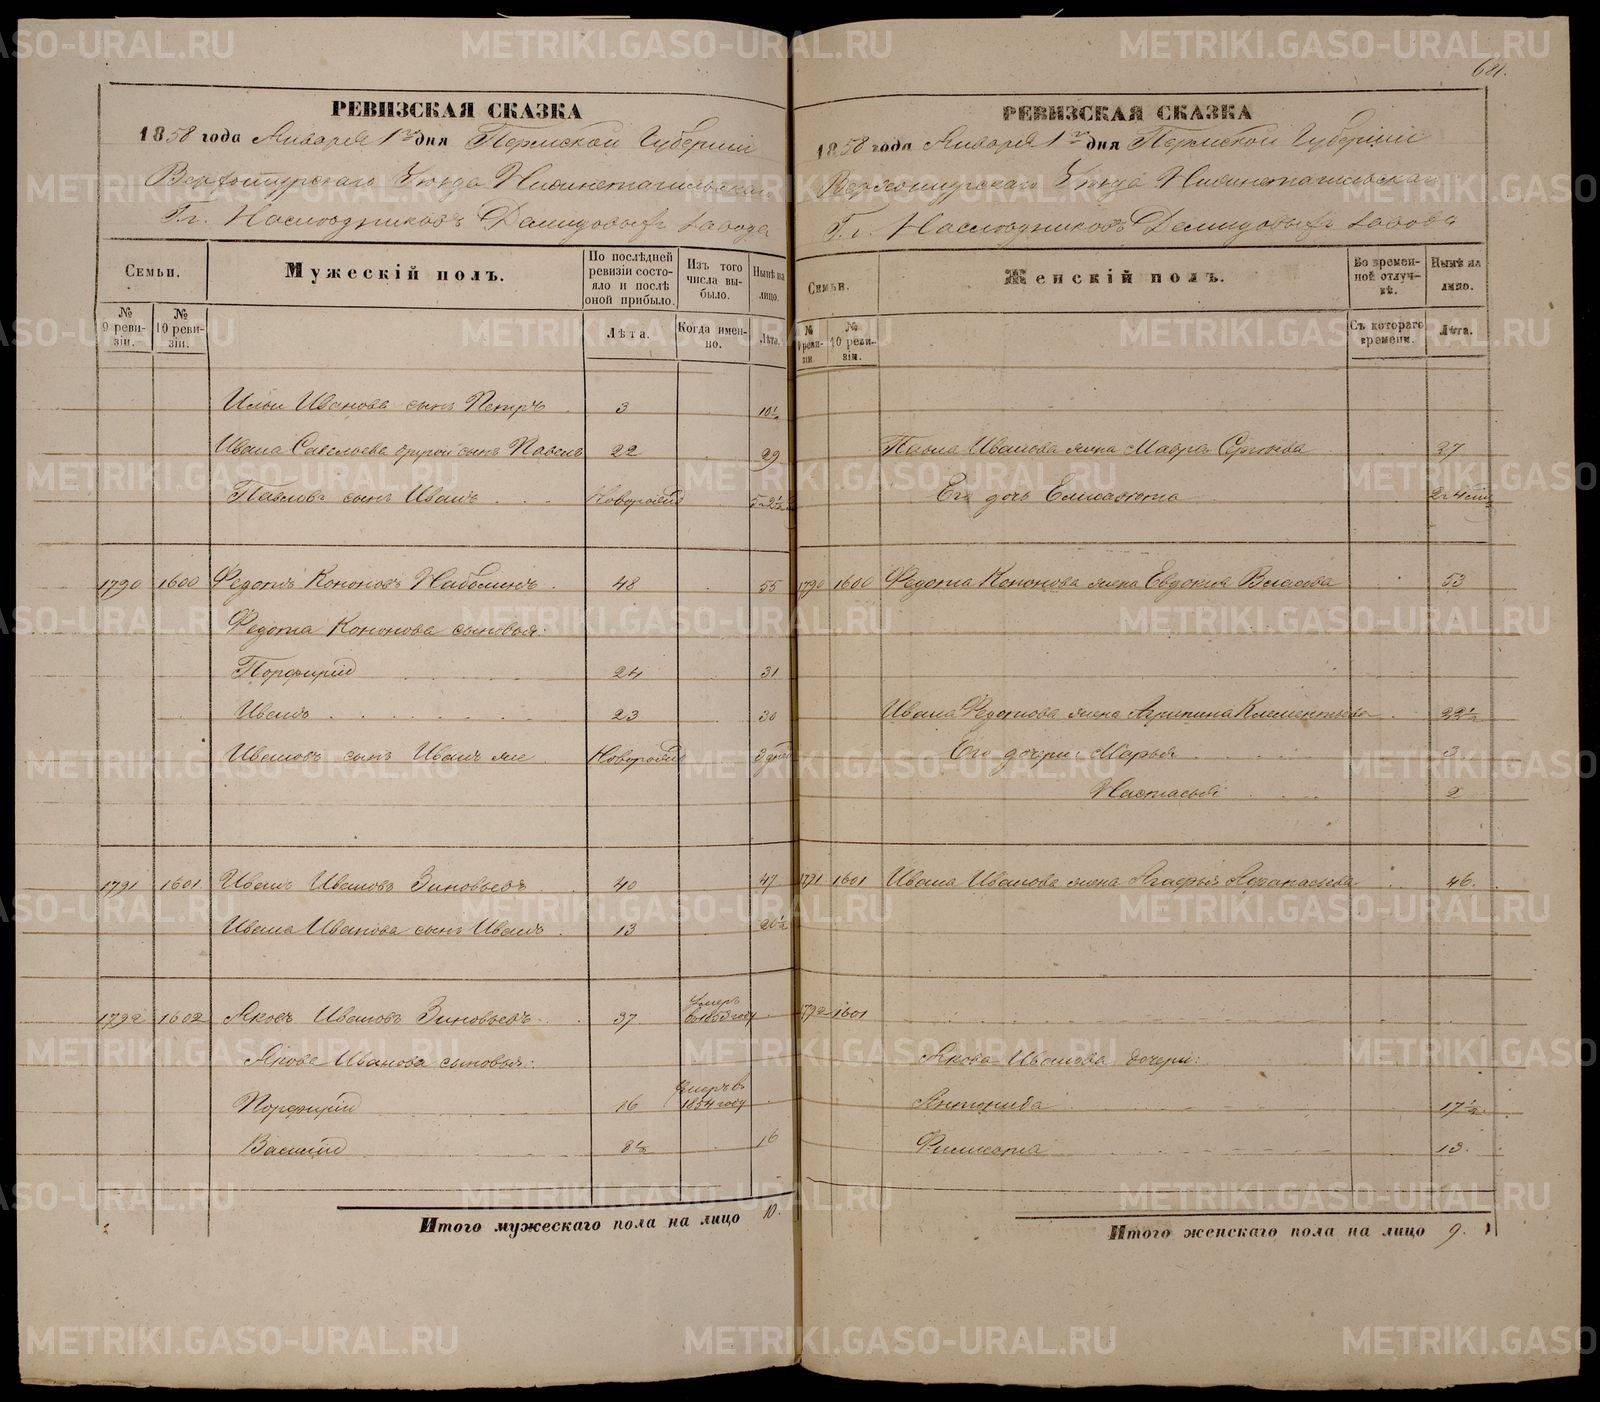 РЕВИЗСКАЯ СКАЗКА
1858 года Января 1го дня Пермской Губернiи
Верхотурскаго Уѣзда Нижнетагильскаго
Г.г. Наслѣдниковъ Демидовыхъ завода
Семьи.
Мужескiй полъ.
По послѣдней ревизiи состояло и послѣ оной прибыло.
Изъ того числа выбыло.
Нынѣ на лицо.
№ 9 ревизiи.
№ 10 ревизiи.
Лѣта.
Когда именно.
Лѣта.
Ильи Иванова сынъ Петръ 3 10½
Ивана Савельева другой сынъ Павелъ 22 29
Павловъ сынъ Иванъ Новорожд
1790 1600 Федотъ Кононовъ 48 55
Федота Кононова сыновья:
Порфирiй 24 31
Иванъ 23 30
Ивановъ сынъ Иванъ же Новорожд
1791 1601 Иванъ Ивановъ Зиновьевъ 40 47
Ивана Иванова сынъ Иванъ 13 20½
1792 1602 Яковъ Ивановъ Зиновьевъ 37 умеръ въ 1853 году
Якова Иванова сыновья:
Порфирiй 16 умеръ въ 1854 году
Василiй 8½ 16
Итого мужескаго пола на лицо 10.
681.
РЕВИЗСКАЯ СКАЗКА
1858 года Января 1го дня Пермской Губернiи
Верхотурскаго Уѣзда Нижнетагильскаго
Г.г. Наслѣдниковъ Демидовыхъ завода
Семьи.
Женскiй полъ.
Во временной отлучкѣ.
Нынѣ на лицо.
№ 9 ревизiи.
№ 10 ревизiи.
Съ котораго времени.
Лѣта.
Павла Иванова жена Мавра Сергѣева 27
Его дочь Елисавета
1790 1600 Федота Кононова жена Евдокия Власова 53
Ивана Федотова жена Агрипина Клементьева 22½
Его дочери: Марья 3
Настасья 2
1791 1601 Ивана Иванова жена Агафья Афанасьева 46.
1792 1601
Якова Иванова дочери:
Антонида 17½
Филисата 13.
Итого женскаго пола на лицо 9.
METRIKI.GASO-URAL.RU